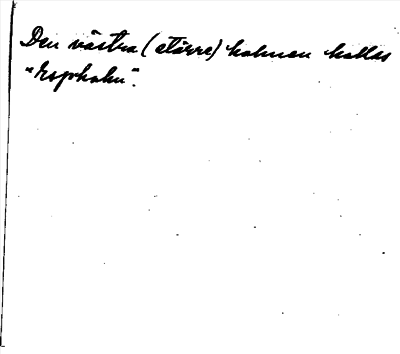 Den västra (större) holmen kallas
"Espholm".